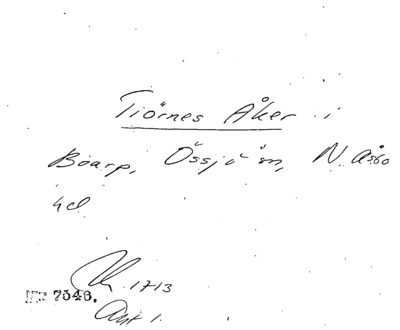 Tiörnes Åker i
Boarp, Össjö sn, N. Åsbo
hd
1713
7546.
Akt 1.